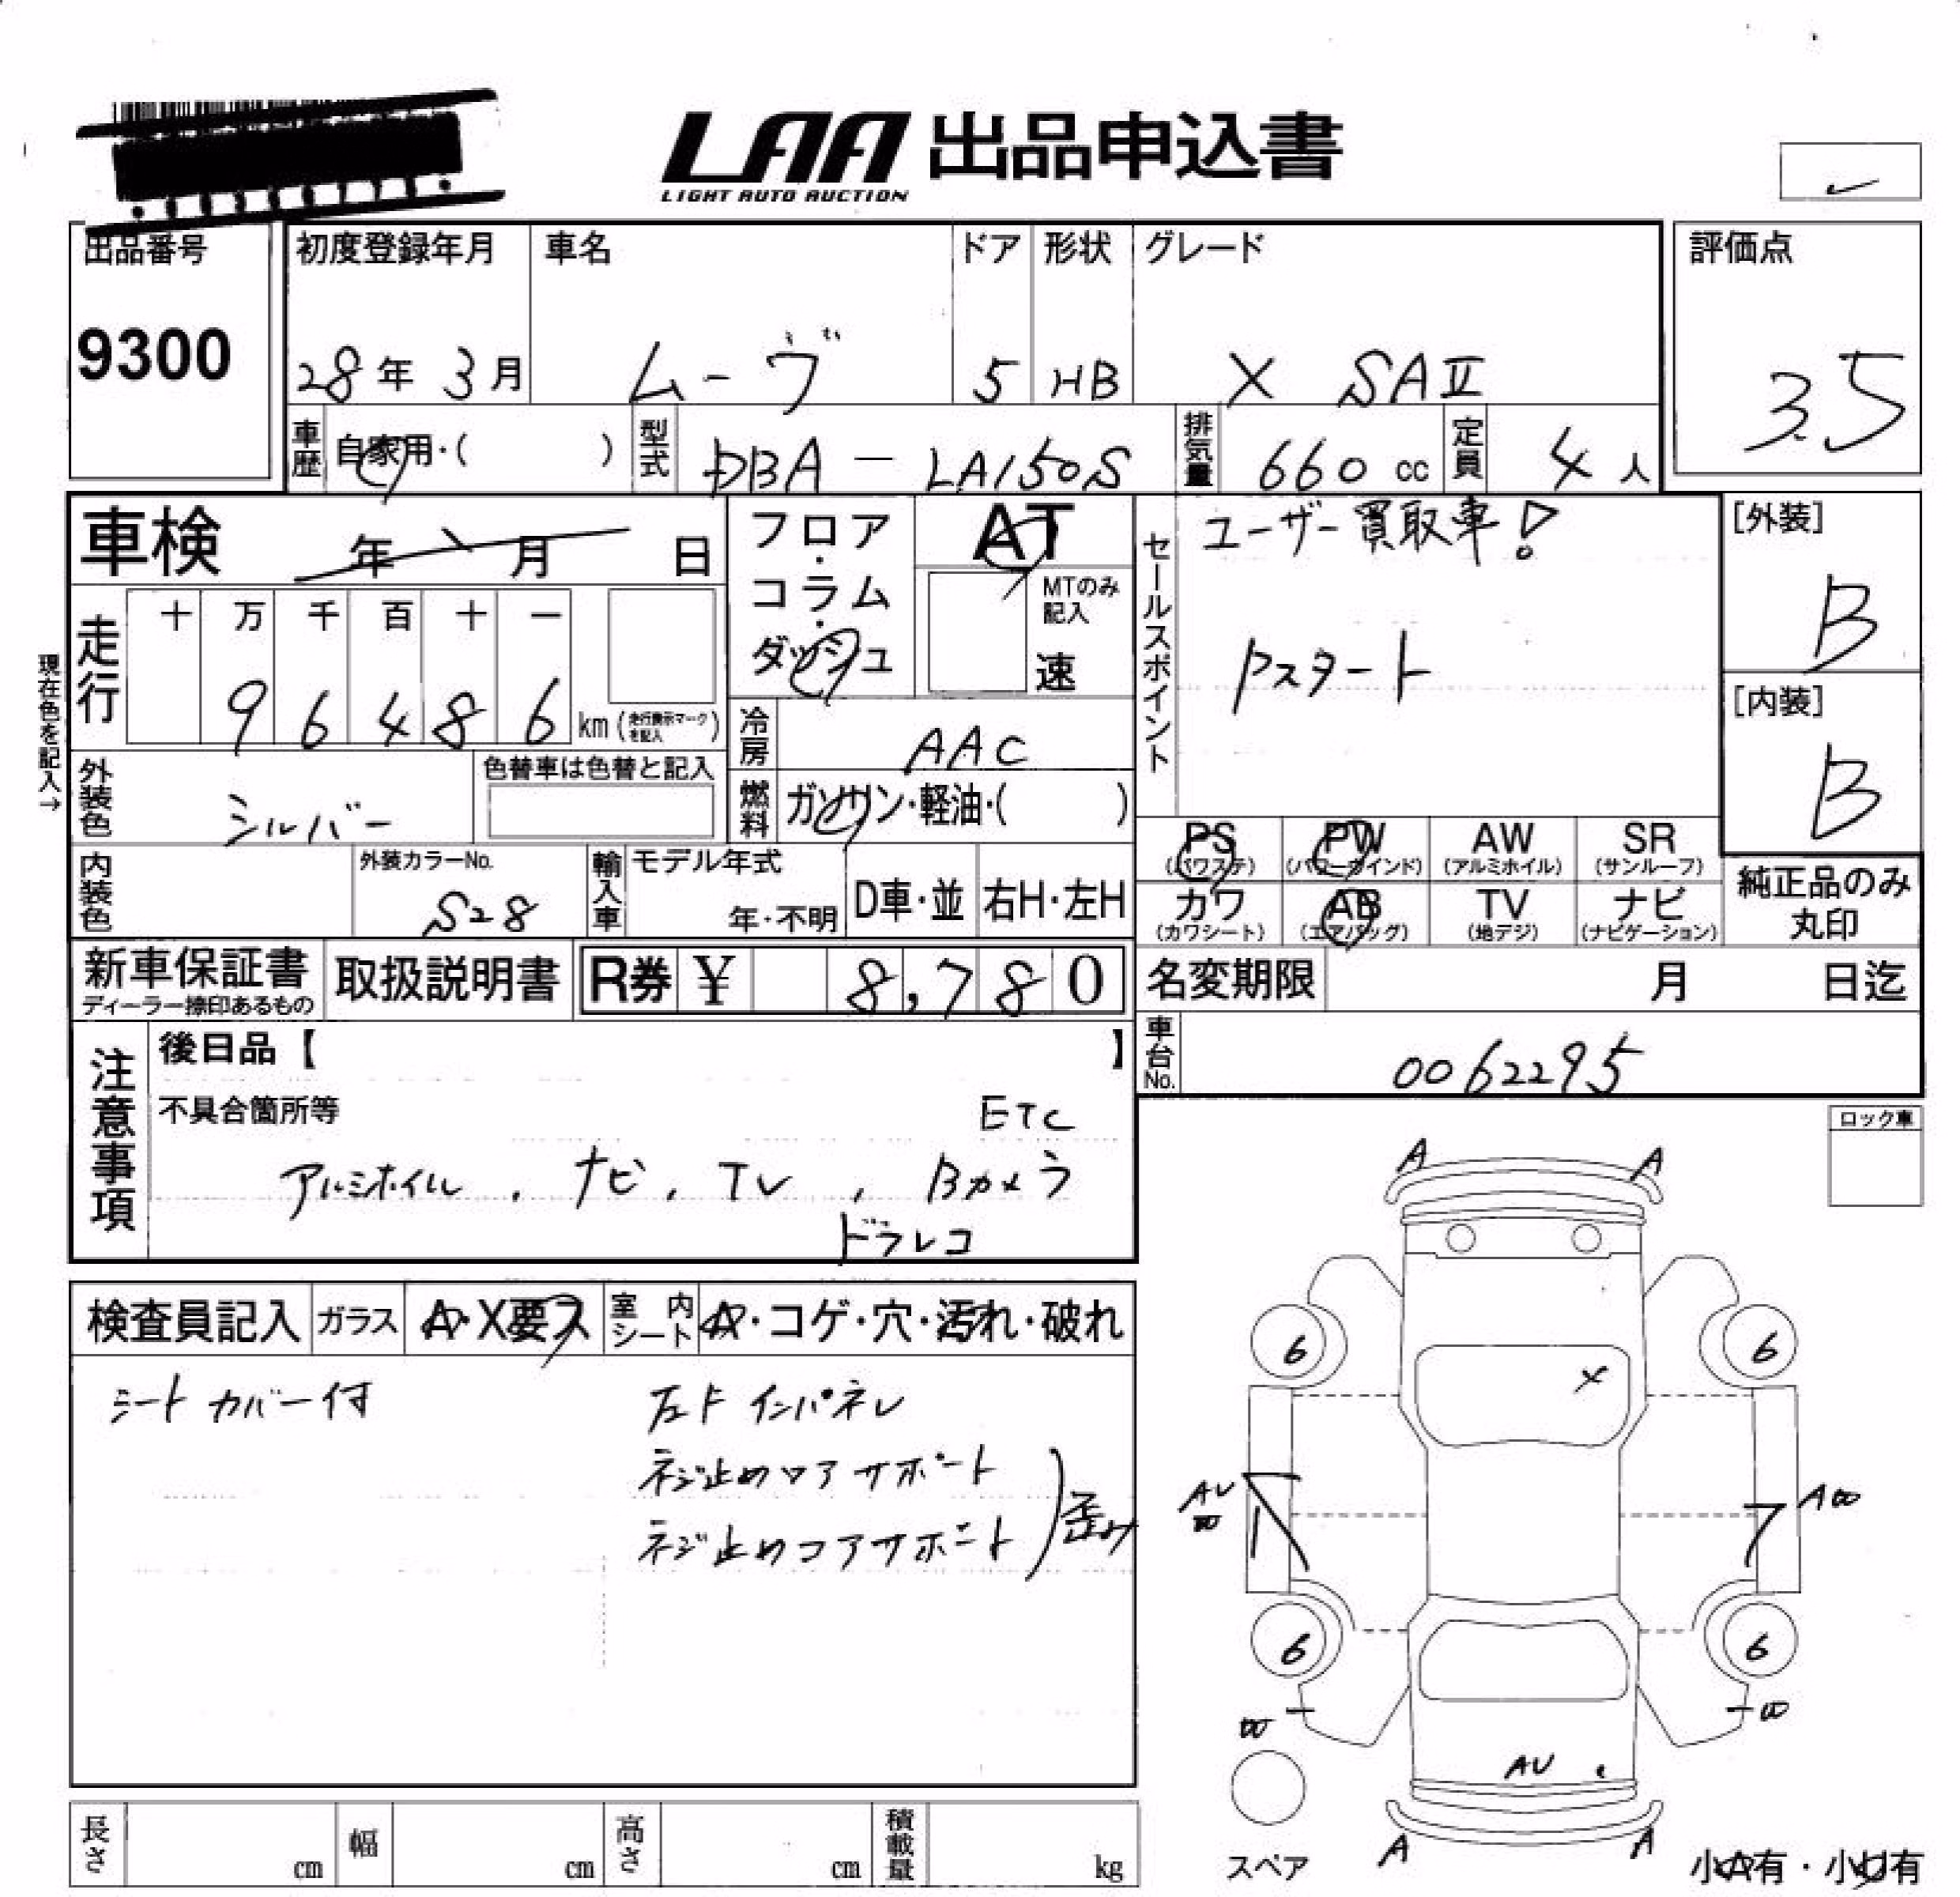 LAA 出品申込書
LIGHT AUTO AUCTION
出品番号
9300
初度登録年月
28年 3月
車名
ムーヴ
ドア
5
形状
HB
グレード
X SAⅡ
評価点
3.5
車歴
自家用・( )
型式
DBA-LA150S
排気量
660 cc
定員
4人
車検 年 月 日
フロア・コラム・ダッシュ
AT
MTのみ記入
速
セールスポイント
ユーザー買取車!
Pスタート
[外装]
B
[内装]
B
現在色を記入→
走行
十 万 千 百 十 一
9 6 4 8 6
km (走行表示マークを記入)
冷房
AAC
燃料
ガソリン・軽油・( )
外装色
シルバー
色替車は色替と記入
内装色
外装カラーNo.
S28
輸入車
モデル年式
年・不明
D車・並
右H・左H
PS (パワステ)
PW (パワーウインド)
AW (アルミホイル)
SR (サンルーフ)
カワ (カワシート)
AB (エアバッグ)
TV (地デジ)
ナビ (ナビゲーション)
純正品のみ丸印
新車保証書
ディーラー捺印あるもの
取扱説明書
R券 ¥ 8,780
名変期限 月 日迄
車台No.
0062295
注意事項
後日品【 】
不具合箇所等
ETC
アルミホイル, ナビ, TV, Bカメラ
ドラレコ
ロック車
検査員記入
ガラス
A・X要ス
室内シート
A・コゲ・穴・汚れ・破れ
シートカバー付
左Fインパネレ
ネジ止めロアサポート
ネジ止めコアサポート
歪み
A A
6 6
X
AU W
AW
6 6
W W
AU
A A
スペア
小A有・小U有
長さ cm
幅 cm
高さ cm
積載量 kg